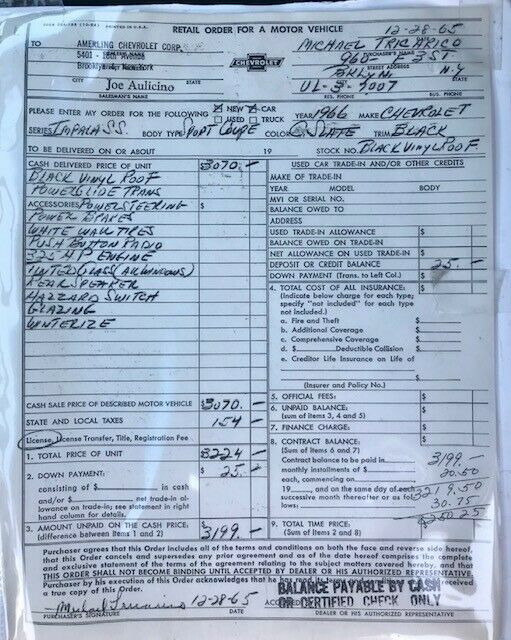 PRINTED IN U.S.A.
RETAIL ORDER FOR A MOTOR VEHICLE
12-28-65
TO AMERLING CHEVROLET CORP.
5401 - 18th Avenue
Brooklyn 4, New York
CITY STATE
Joe Aulicino
SALESMAN'S NAME
CHEVROLET
MICHAEL TRICARICO
PURCHASER'S NAME
960 3 ST
STREET ADDRESS
BKLYN N.Y
CITY STATE
UL-8-5007
RES. PHONE BUS. PHONE
PLEASE ENTER MY ORDER FOR THE FOLLOWING NEW CAR USED TRUCK YEAR 1966 MAKE CHEVROLET
SERIES IMPALA S.S. BODY TYPE SPORT COUPE COLOR SLATE TRIM BLACK
TO BE DELIVERED ON OR ABOUT 19 STOCK NO. BLACK VINYL ROOF
CASH DELIVERED PRICE OF UNIT $3070.-
BLACK VINYL ROOF
POWERGLIDE TRANS
ACCESSORIES POWER STEERING $
POWER BRAKES
WHITE WALL TIRES
PUSH BUTTON RADIO
325 HP ENGINE
TINTED GLASS (ALL WINDOWS)
REAR SPEAKER
HAZZARD SWITCH
GLAZING
WINTERIZE
CASH SALE PRICE OF DESCRIBED MOTOR VEHICLE $3070.-
STATE AND LOCAL TAXES 154 -
License, License Transfer, Title, Registration Fee
1. TOTAL PRICE OF UNIT $3224 -
2. DOWN PAYMENT: $25.-
consisting of $ in cash
and/or $ net trade-in al-
lowance on trade-in; see statement in right
hand column for details.
3. AMOUNT UNPAID ON THE CASH PRICE: $3199.-
(difference between Items 1 and 2)
USED CAR TRADE-IN AND/OR OTHER CREDITS
MAKE OF TRADE-IN
YEAR MODEL BODY
MVI OR SERIAL NO.
BALANCE OWED TO
ADDRESS
USED TRADE-IN ALLOWANCE $
BALANCE OWED ON TRADE-IN
NET ALLOWANCE ON USED TRADE-IN $
DEPOSIT OR CREDIT BALANCE 25.-
DOWN PAYMENT (Trans. to Left Col.) $
4. TOTAL COST OF ALL INSURANCE: $
(Indicate below charge for each type;
specify "not included" for each type
not included.)
a. Fire and Theft $
b. Additional Coverage $
c. Comprehensive Coverage $
d. $ Deductible Collision $
e. Creditor Life Insurance on Life of
$
(Insurer and Policy No.)
5. OFFICIAL FEES: $
6. UNPAID BALANCE: $
(sum of Items 3, 4 and 5)
7. FINANCE CHARGE: $
8. CONTRACT BALANCE:
(Sum of Items 6 and 7)
Contract balance to be paid in 3199.-
monthly installments of $ 20.50
each, commencing on
19, and on the same day of each 3219.50
successive month thereafter or as fol-
lows: 30.75
$3250.25
9. TOTAL TIME PRICE: $
(Sum of Items 2 and 8)
Purchaser agrees that this Order includes all of the terms and conditions on both the face and reverse side hereof,
that this Order cancels and supersedes any prior agreement and as of the date hereof comprises the complete
and exclusive statement of the terms of the agreement relating to the subject matters covered hereby, and that
THIS ORDER SHALL NOT BECOME BINDING UNTIL ACCEPTED BY DEALER OR HIS AUTHORIZED REPRESENTATIVE.
Purchaser by his execution of this Order acknowledges that he has read its terms and
a true copy of this Order.
BALANCE PAYABLE BY CASH
OR CERTIFIED CHECK ONLY
12-28-65
PURCHASER'S SIGNATURE DATE DEALER OR HIS AUTHORIZED REPRESENTATIVE